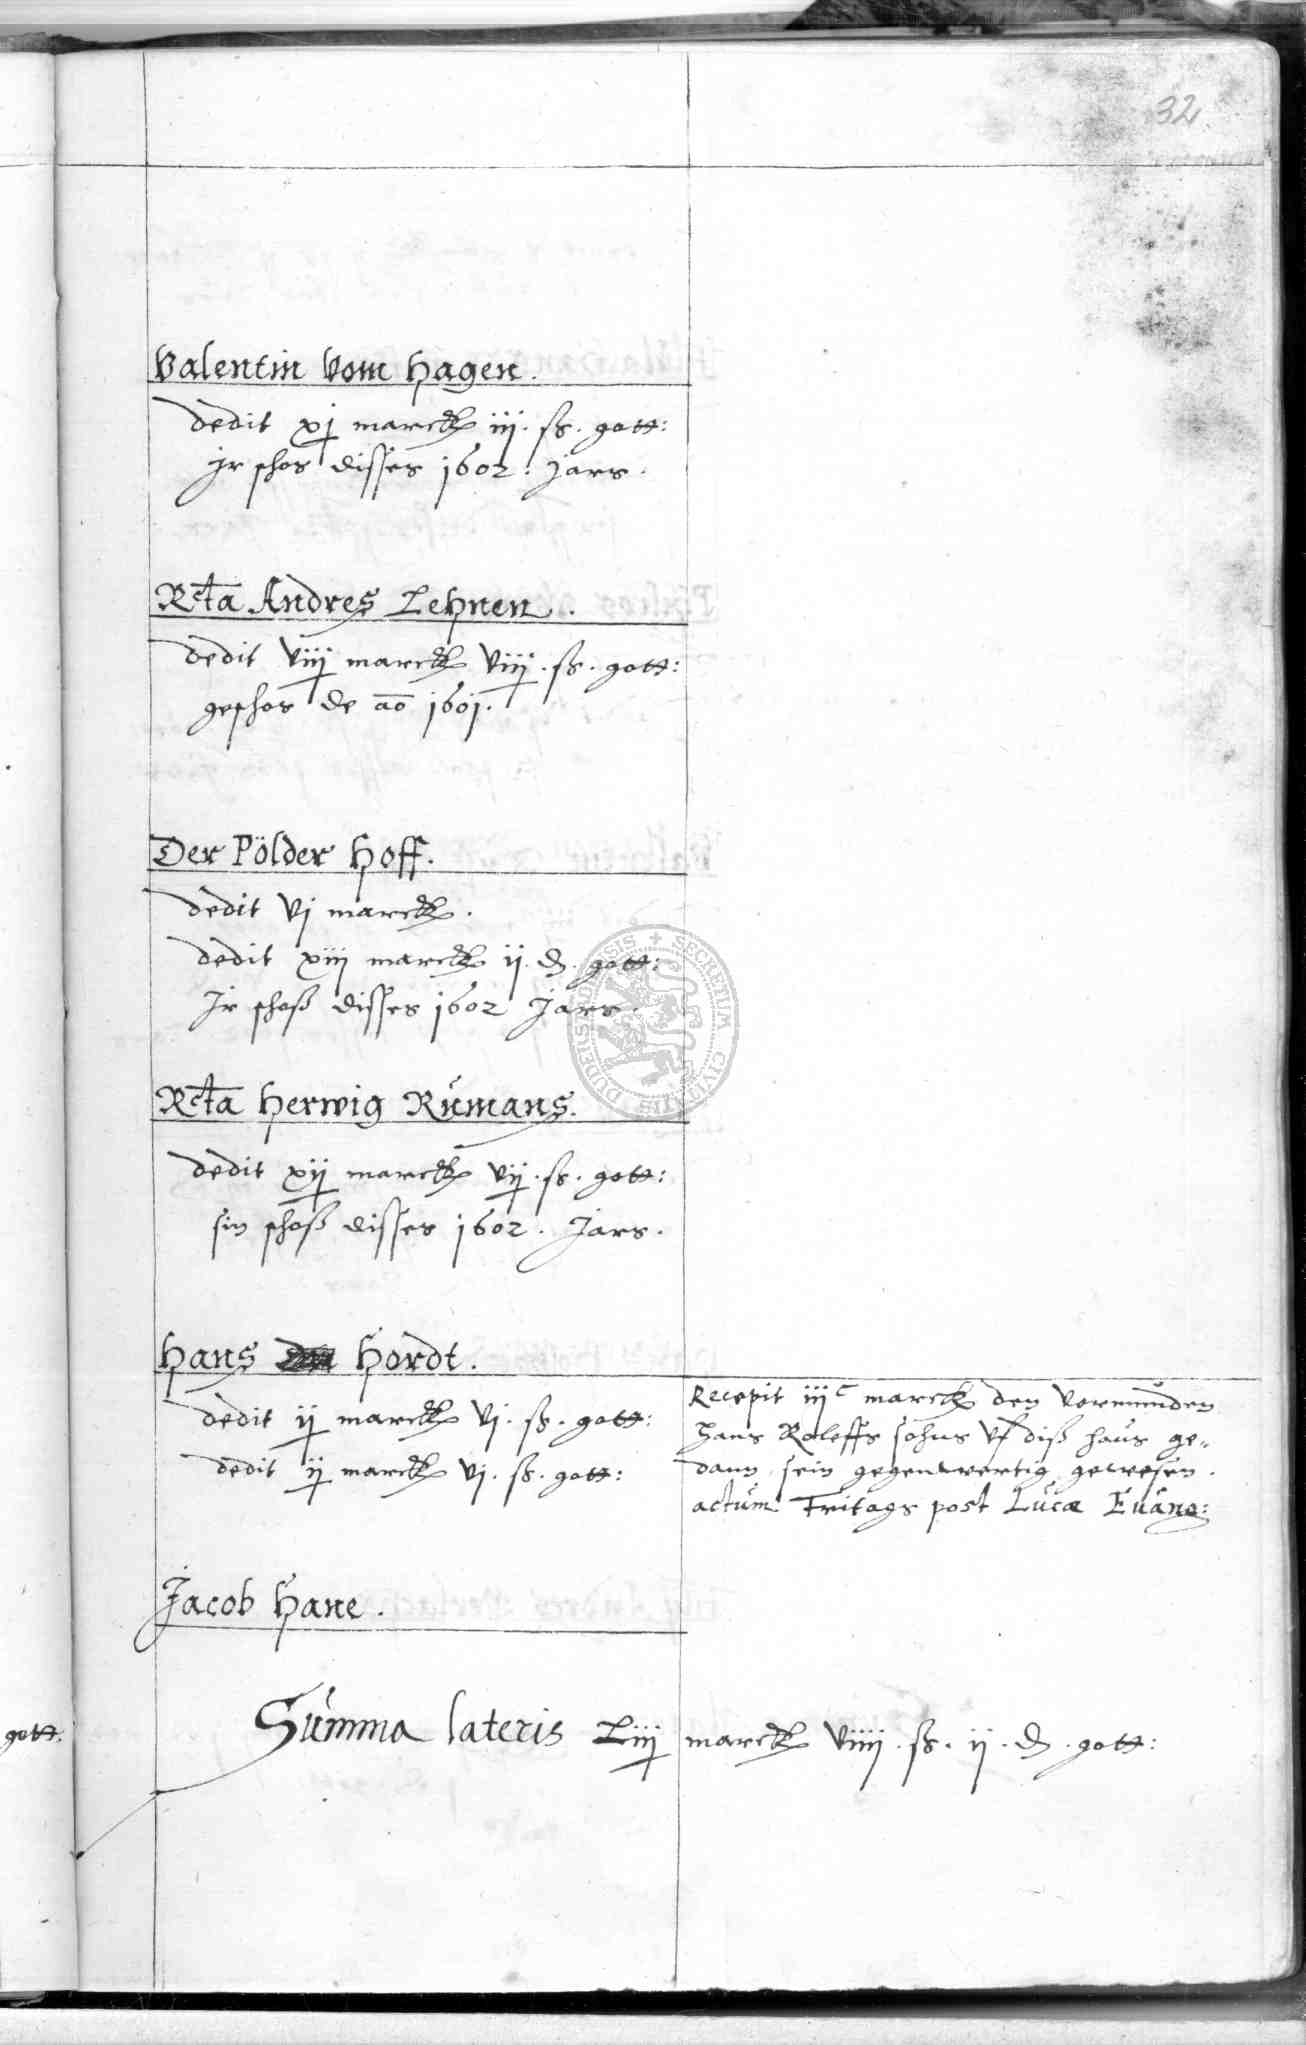 32
Valentin Vom Hagen.
dedit xj marck iij. ß. gott:
jr schos disses 1602. jars.
Rcta Andres Lehnen.
dedit viij marck viij. ß. gott:
geschos de ao 1601.
Der Pölder Hoff.
dedit vj marck.
dedit xiij marck ij. d. gott:
Jr schoß disses 1602 Jars.
SECRETUM CIVITATIS DUDERSTADENSIS
Rcta Herwig Rumans.
dedit xij marck vij. ß. gott:
sin schoß disses 1602. Jars.
Hans Hordt.
dedit ij marck vj. ß. gott:
dedit ij marck vj. ß. gott:
Recepit iij c marck den Vormunden
Hans Roleffs sohns Vf diß haus ge„
dann sein gegenwertig gewesen.
actum Fritags post Lucæ Euang:
Jacob Hane.
gott:
Summa lateris Liij marck viiij. ß. ij. d. gott: